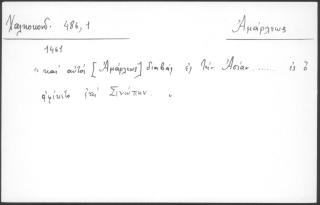 Χαλκοκονδ. 486,1 Ἀμάρλεως
1461
"καὶ αὐτὸς [Ἀμάρλεως] διαβὰς ἐς τὴν Ἀσίαν ...... ἐς ὃ
ἀφίκετο ἐπὶ Σινώπην. "